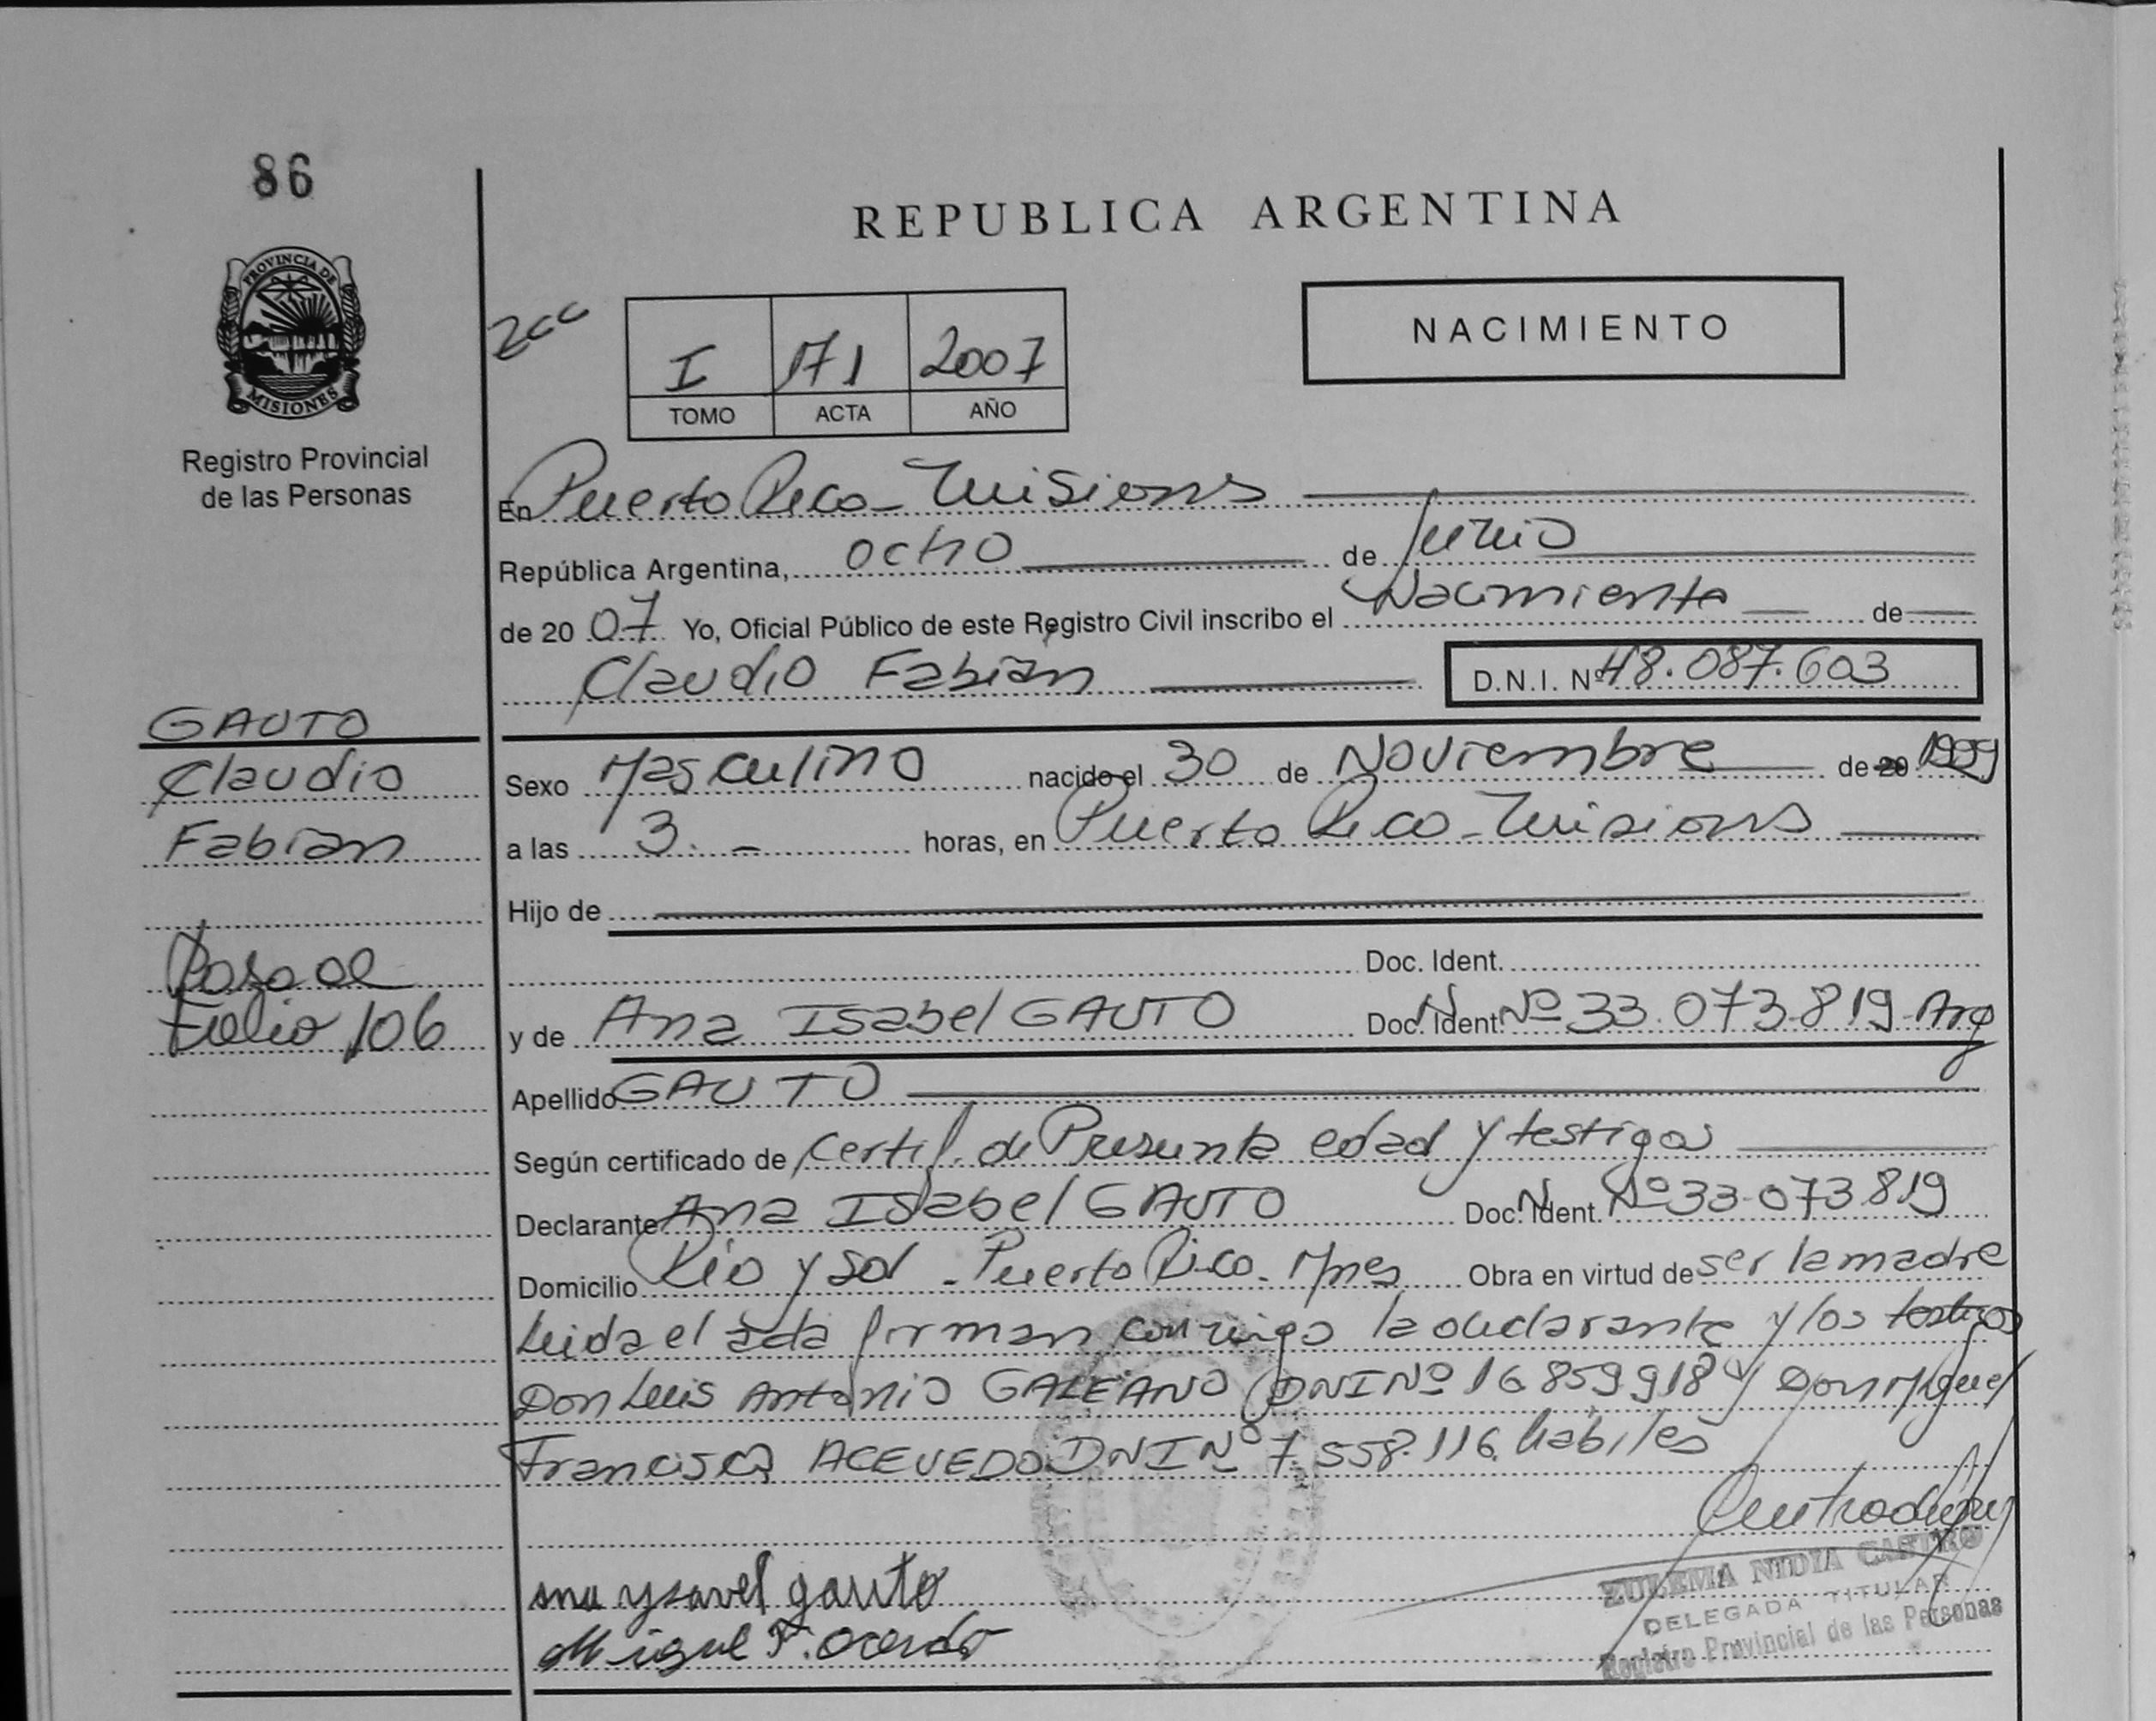 86
REPUBLICA ARGENTINA
PROVINCIA DE
MISIONES
Registro Provincial
de las Personas
I 171 2007
TOMO ACTA AÑO
NACIMIENTO
En Puerto Rico - Misiones
República Argentina, ocho de Junio
de 20 07 Yo, Oficial Público de este Registro Civil inscribo el Nacimiento de
Claudio Fabian D.N.I. Nº 48.087.603
GAUTO
Claudio
Fabian
Sexo Masculino nacido el 30 de Noviembre de 20 1999
a las 3. - horas, en Puerto Rico - Misiones
Hijo de
Doc. Ident.
Pasa al
Folio 106
y de Ana Isabel GAUTO Doc. Ident. Nº 33.073.819 Arg
Apellido GAUTO
Según certificado de Certif. de Presunta edad y testigos
Declarante Ana Isabel GAUTO Doc. Ident. Nº 33.073.819
Domicilio Rio y Sol - Puerto Rico - Mnes Obra en virtud de ser la madre
Leida el acta firman conmigo la declarante y los testigos
Don Luis Antonio GALEANO DNI Nº 16859918 y Don Miguel
Francisco ACEVEDO DNI Nº 7.558.116 habiles
ana ysavel gauto
Miguel F.
ZULEMA NIDIA CASTRO
DELEGADA TITULAR
Registro Provincial de las Personas